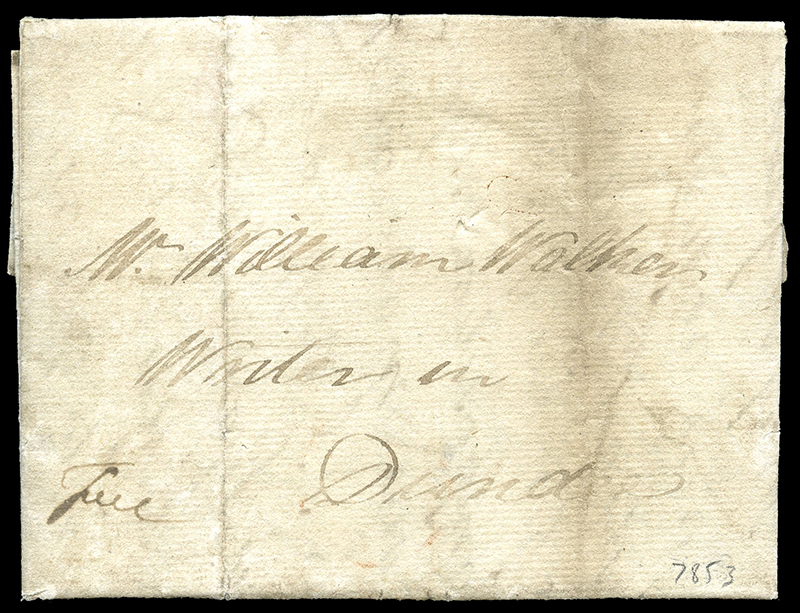 Mr William Walker
Writer in
Dundee
Free
7853